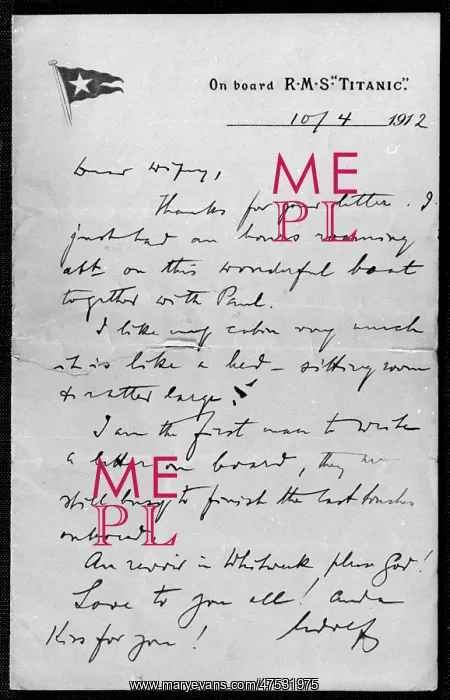 On board R·M·S·"TITANIC".
10/4 1912
Dear Wifey,
Thanks for your letter. I
just had an hours roaming
abt on this wonderful boat
together with Paul.
I like my cabin very much
it is like a bed – sitting room
& rather large.
I am the first man to write
a letter on board, they are
still busy to finish the last touches
onboard.
Au revoir in Whitweek please God!
Love to you all! and a
Kiss for you! Adolf
ME
PL
ME
PL
www.maryevans.com/47531975